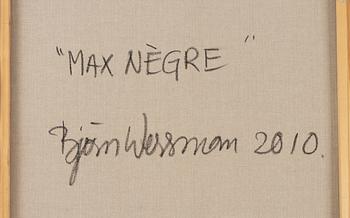 "MAX NÈGRE"
Björn Wessman 2010.